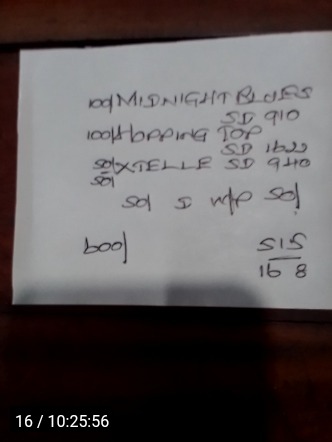 100/ MIDNIGHT BLUES
SD 910
100/ HOPPING TOP
SD 1620
50/ XTELLE SD 940
50/
50/ I W/P 50/
600/
515
16 8
16 / 10:25:56